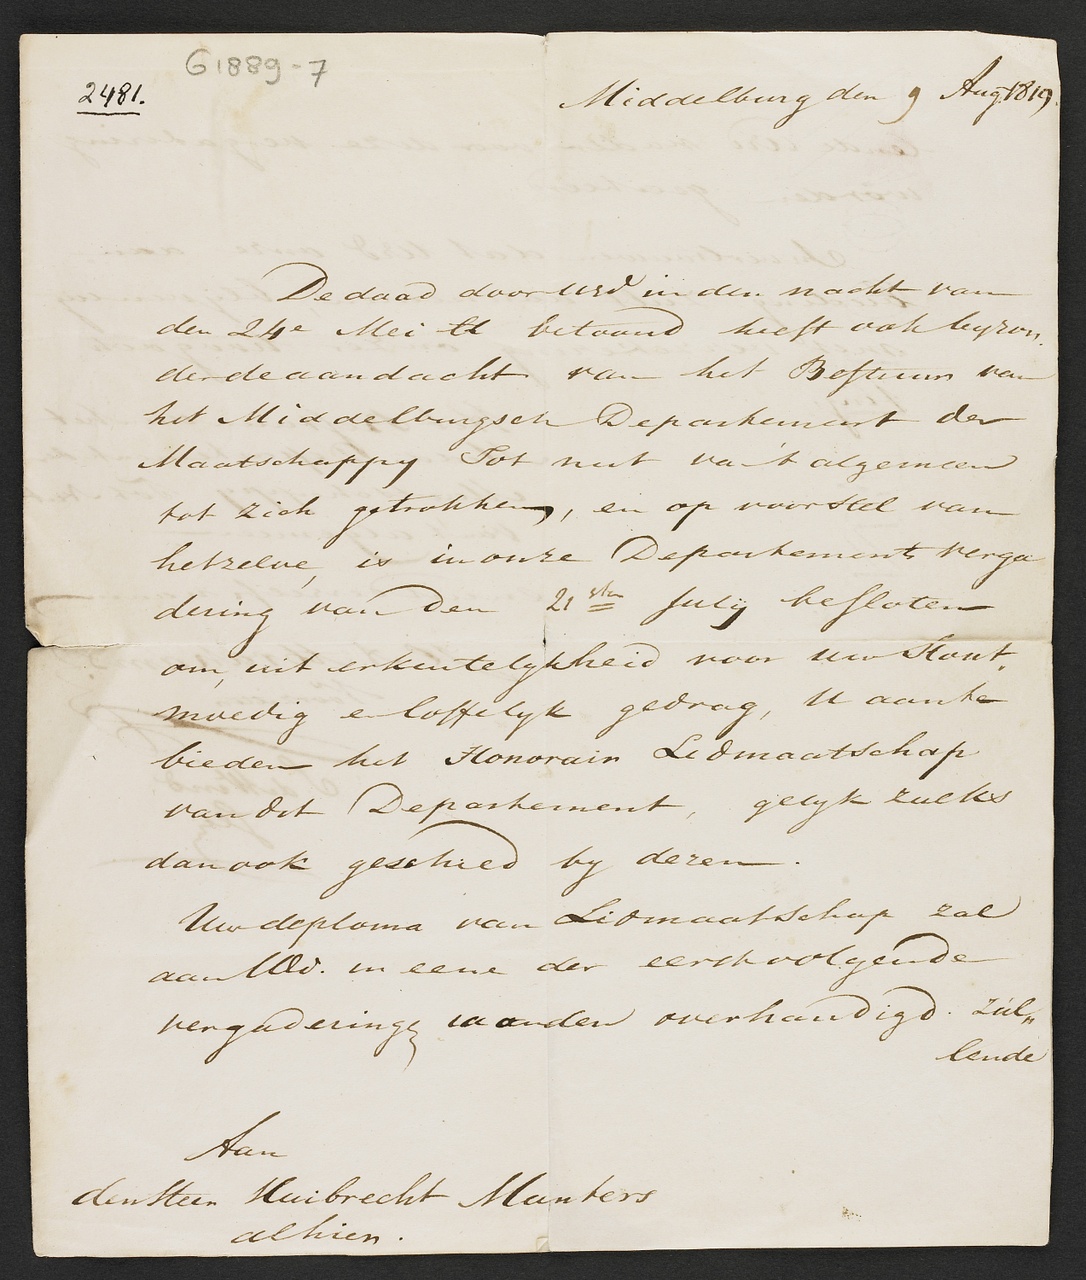 G1889-7
2481.
Middelburg den 9 Aug. 1819.
De daad door UEd in den nacht van
den 24e Mei ll betoond heeft ook byzon-
derde aandacht van het Bestuur van
het Middelburgsch Departement der
Maatschappy Tot nut van 't algemeen
tot zich getrokken, en op voorstel van
hetzelve, is in onze Departements verga
dering van den 21sten July besloten
om, uit erkentelykheid voor uw stout,
moedig en loffelyk gedrag, U aante
bieden het Honorair Lidmaatschap
van dit Departement, gelyk zulks
dan ook geschied by dezen.
Uw deploma van Lidmaatschap zal
aan UEd. in eene der eerstvolgende
vergaderingen worden overhandigd. Zul„
lende
Aan
den Heer Huibrecht Munters
alhier.